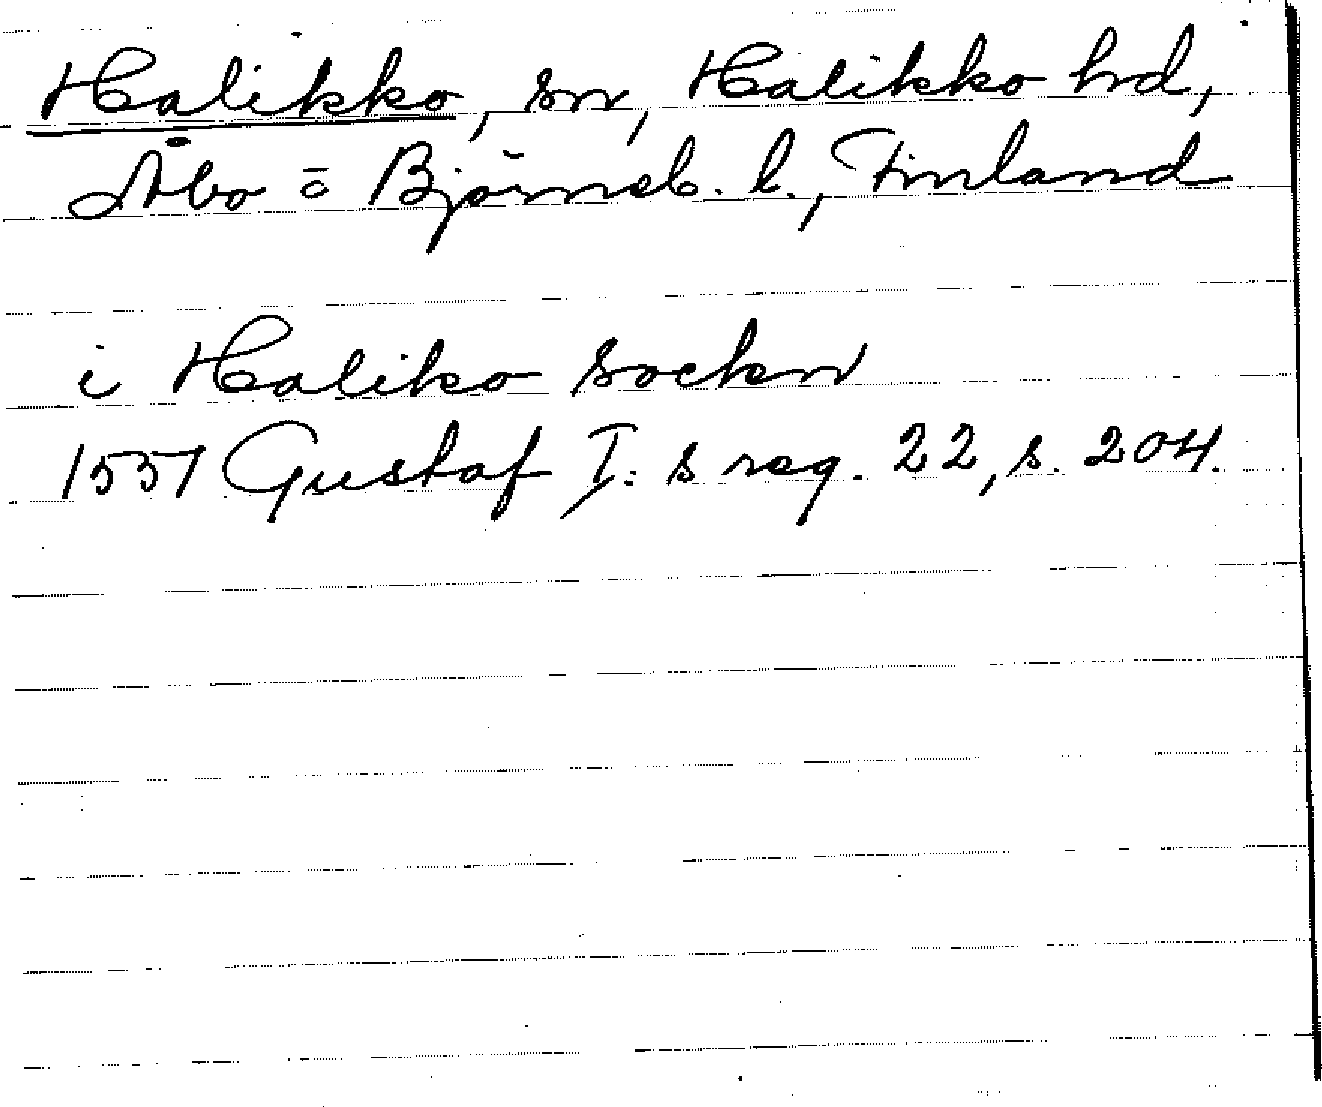 Halikko, sn, Halikko hd,
Åbo o Björneb. l., Finland
i Haliko sockn
1551 Gustaf I: s reg. 22, s. 204.